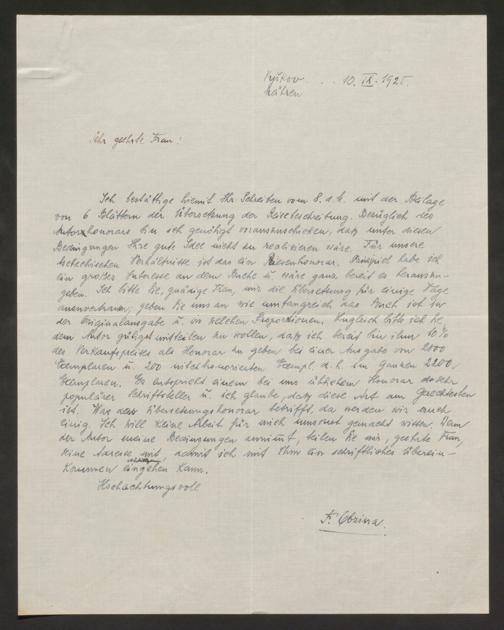 Vyškov . . 10. IX. 1925.
Mähren
Sehr geehrte Frau!
Ich bestätige hiemit Ihr Schreiben vom 8. d. M. mit der Beilage
von 6 Blättern der Übersetzung der Reisebeschreibung. Bezüglich des
Autorhonorars bin ich genötigt vorauszuschicken, dass unter diesen
Bedingungen Ihre gute Idee nicht zu realisieren wäre. Für unsere
tschechischen Verhältnisse ist das ein Riesenhonorar. Prinzipiel habe ich
ein grosses Interesse an dem Buche u. wäre ganz bereit es herauszu-
geben. Ich bitte Sie, gnädige Frau, mir die Übersetzung für einige Tage
anzuvertrauen, geben Sie uns an wie umfangreich das Buch ist in
der Originalausgabe u. in welchen Proportionen. Zugleich bitte ich Sie,
dem Autor gütigst mitteilen zu wollen, dass ich bereit bin ihm 10%
des Verkaufspreises als Honorar zu geben bei einer Ausgabe von 2000
Exemplaren u. 200 nichthonorierten Exempl. d. h. im Ganzen 2200
Exemplaren. Es entspricht einem bei uns üblichen Honorar
populärer Schriftsteller u. ich glaube, dass diese Art am Gerechtesten
ist. Was das Übersetzungshonorar betrifft, da werden wir auch
einig. Ich will keine Arbeit für mich umsonst gemacht wissen. Wenn
der Autor meine Bedingungen annimmt, teilen Sie mir, geehrte Frau,
seine Adresse mit, damit ich mit Ihm ein schriftliches Überein-
kommen eingehen kann.
Hochachtungsvoll
F. Obzina.